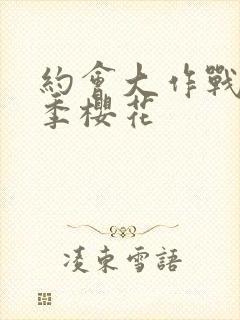 約會大作戰
季櫻花
凌東雪語